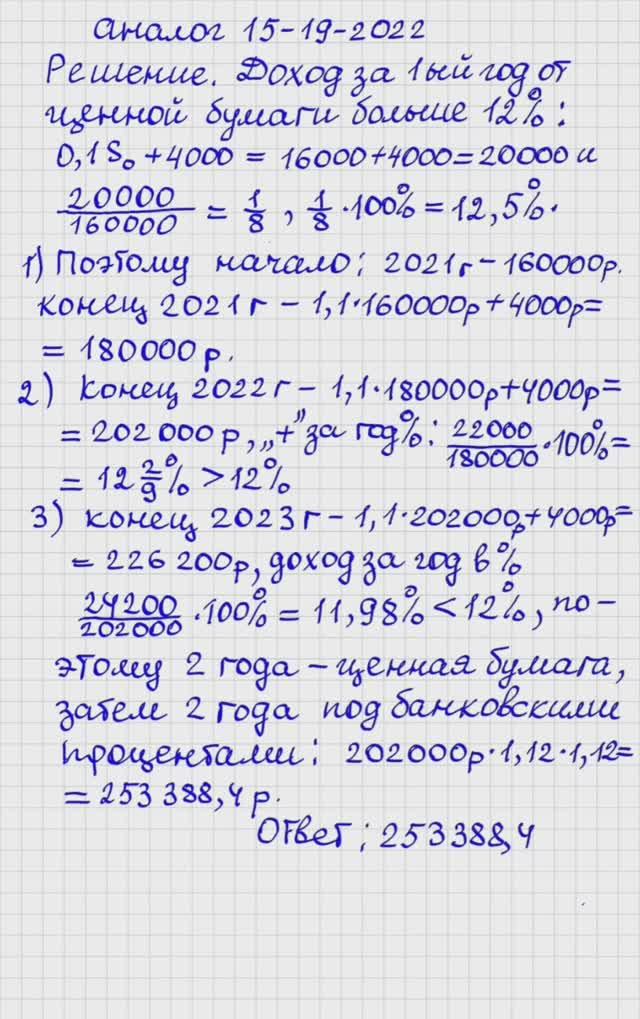 Аналог 15-19-2022
Решение. Доход за 1ый год от
ценной бумаги больше 12%:
0,1S₀ + 4000 = 16000+4000=20000 и
20000/160000 = 1/8, 1/8·100% = 12,5%.
1) Поэтому начало: 2021г – 160000р.
конец 2021г – 1,1·160000р+4000р=
= 180000р.
2) конец 2022г – 1,1·180000р+4000р=
= 202000р, „+” за год%: 22000/180000·100%=
= 12 2/9% > 12%
3) конец 2023г – 1,1·202000р+4000р=
= 226200р, доход за год в %
24200/202000·100% = 11,98% < 12%, по-
этому 2 года – ценная бумага,
затем 2 года под банковскими
процентами: 202000р·1,12·1,12=
= 253388,4р.
Ответ: 253388,4